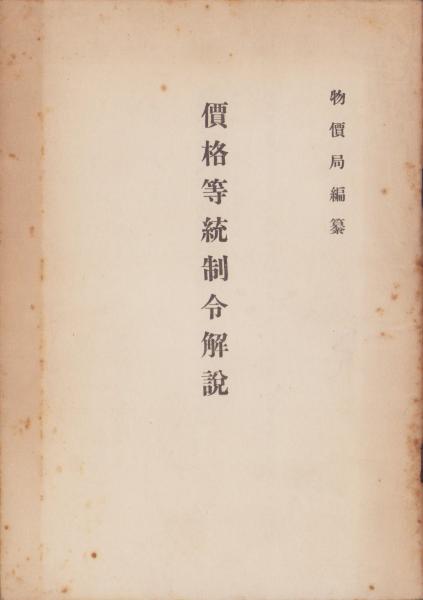 物價局編纂
價格等統制令解說